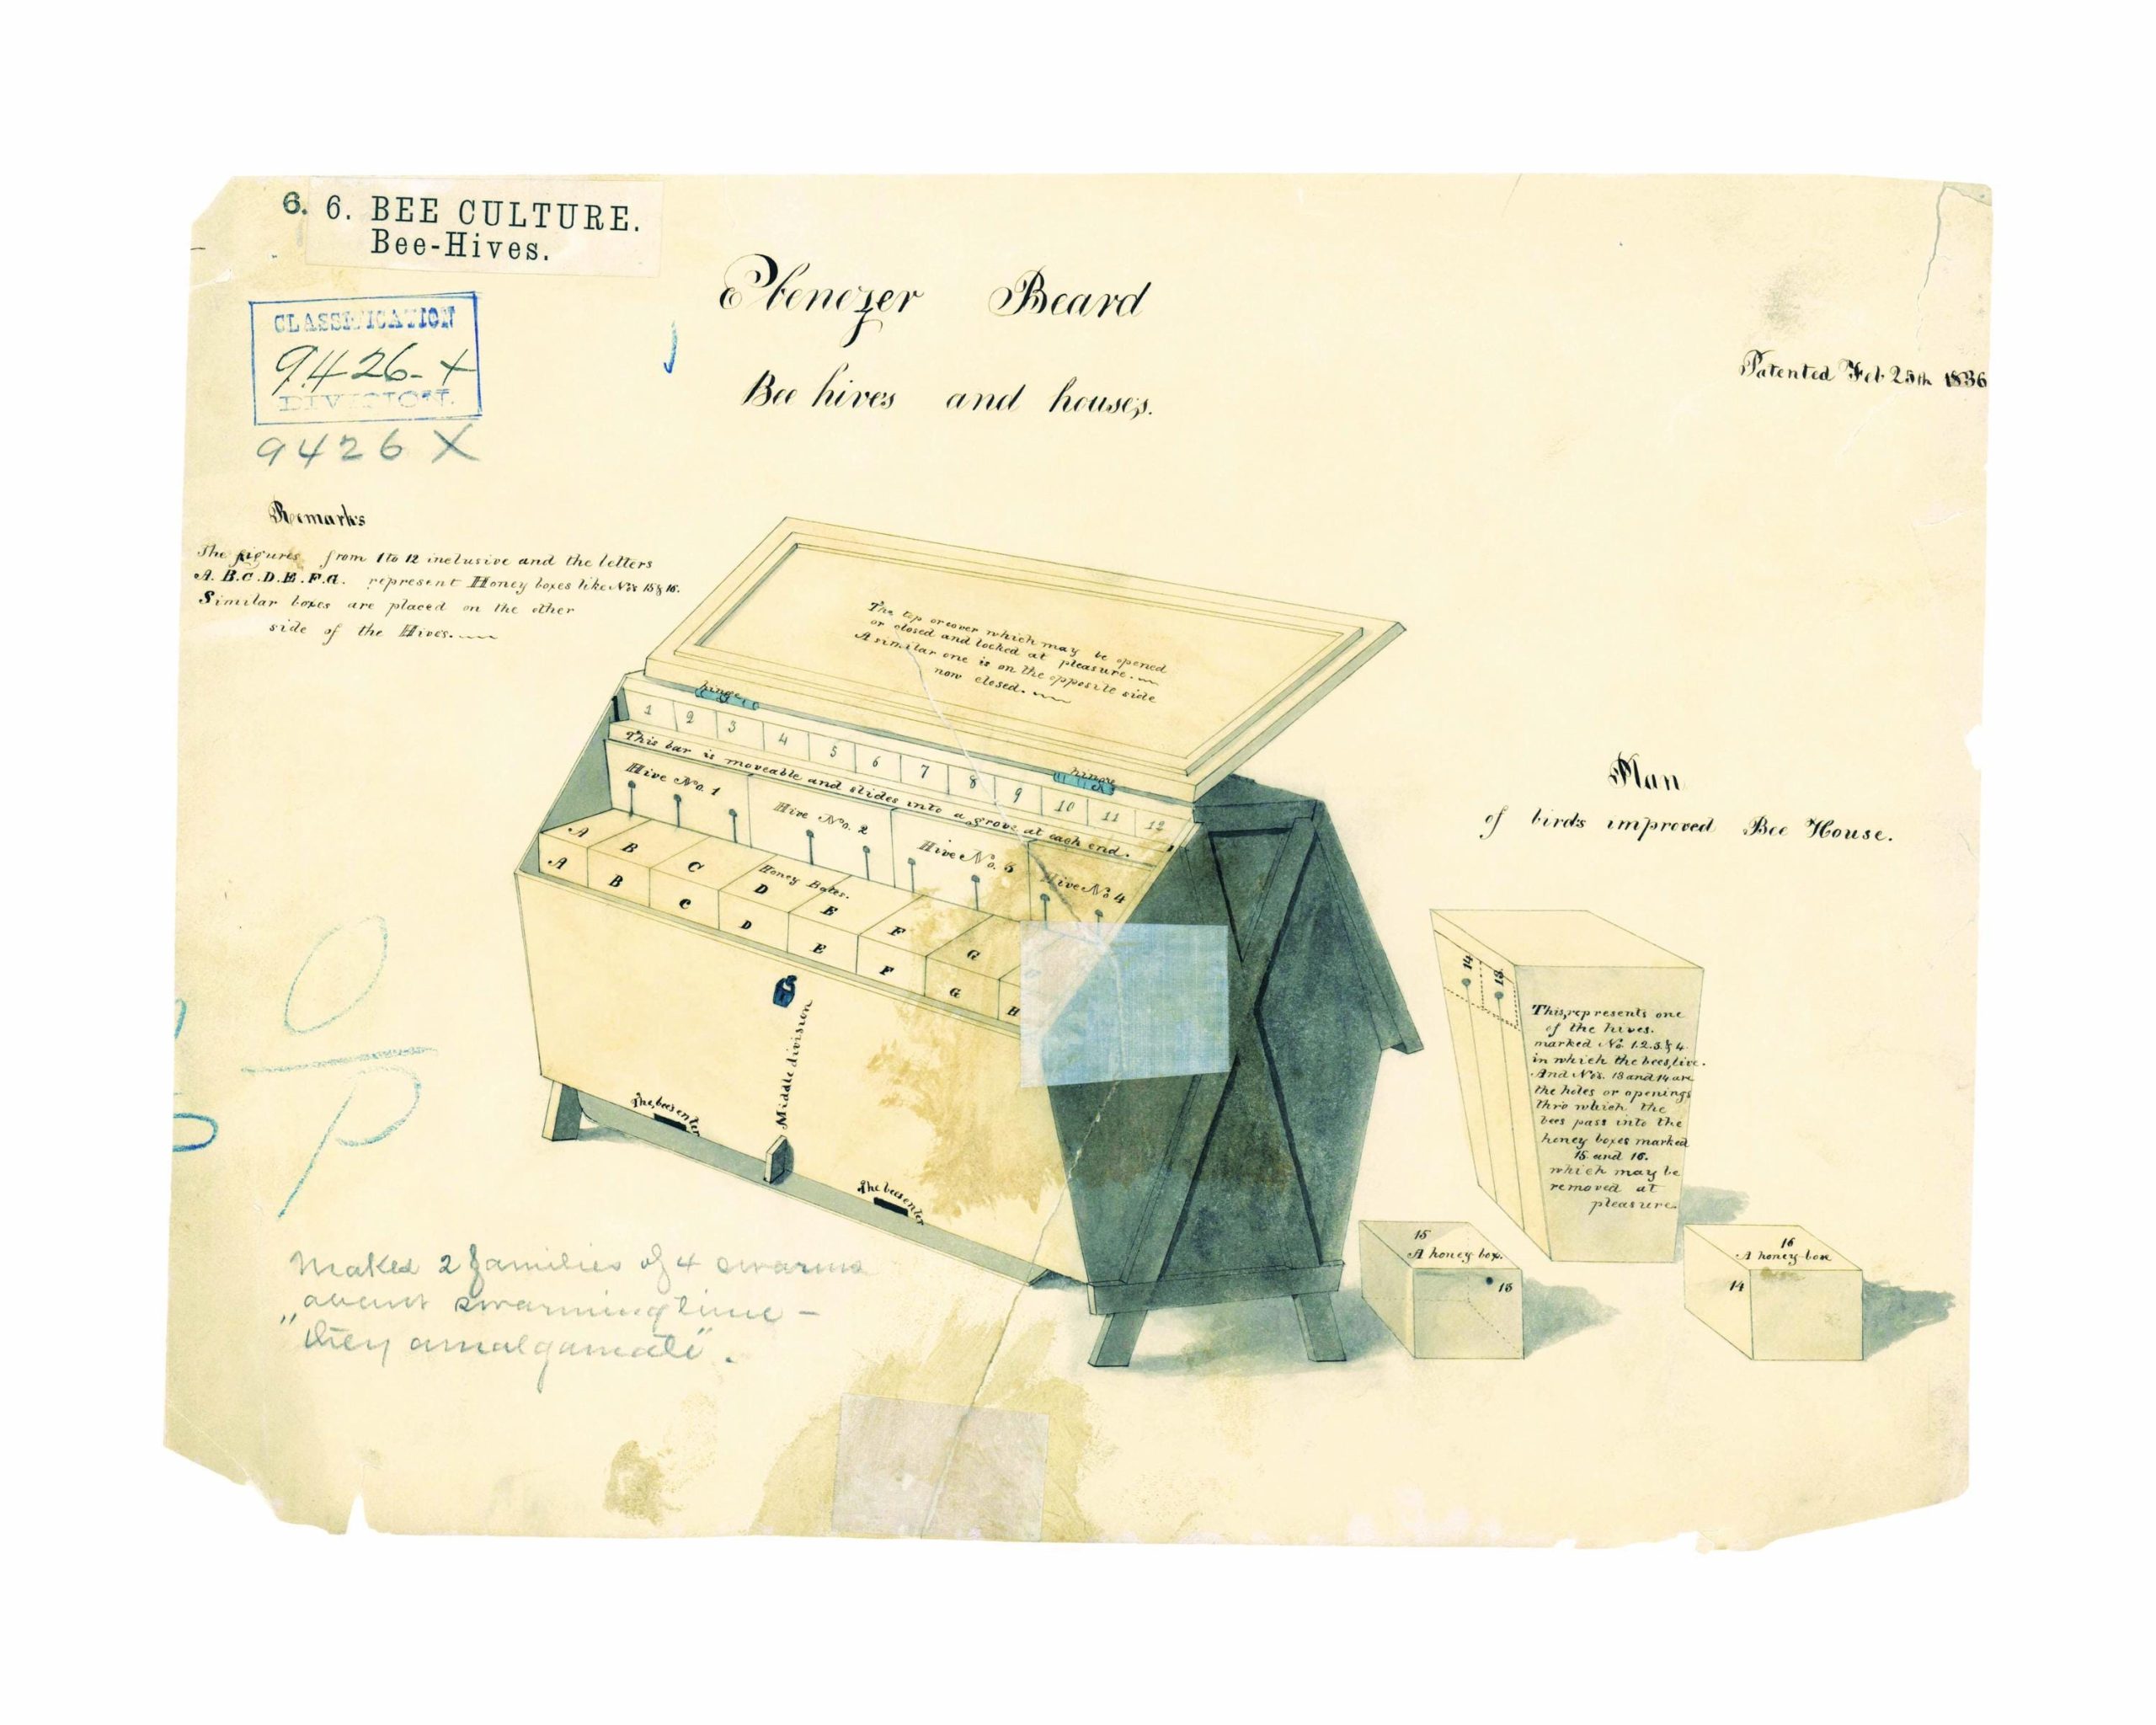 6. 6. BEE CULTURE.
Bee-Hives.
CLASSIFICATION
9426-X
DIVISION.
9426 X
Ebenezer Beard
Bee hives and houses.
Patented Feb 25th 1836
Remarks
The figures from 1 to 12 inclusive and the letters
A. B. C. D. E. F. G. represent Honey boxes like Nos 15 & 16.
Similar boxes are placed on the other
side of the Hives.
The top or cover which may be opened
or closed and locked at pleasure.
A similar one is on the opposite side
now closed.
hinge
hinge
1 2 3 4 5 6 7 8 9 10 11 12
This bar is moveable and slides into a grove at each end.
Hive No. 1
Hive No. 2
Hive No. 3
Hive No. 4
Honey Boxes.
A B C D E F G
A B C D E F G H
Middle division
The bees enter
The bees enter
Plan
of birds improved Bee House.
14 13
This represents one
of the hives.
marked No. 1.2.3.& 4.
in which the bees live.
And Nos. 13 and 14 are
the holes or openings
thro which the
bees pass into the
honey boxes marked
15. and 16.
which may be
removed at
pleasure.
15
A honey box.
13
16
A honey box
14
O
P
Makes 2 families of 4 swarms
swarming time -
"they amalgamate".